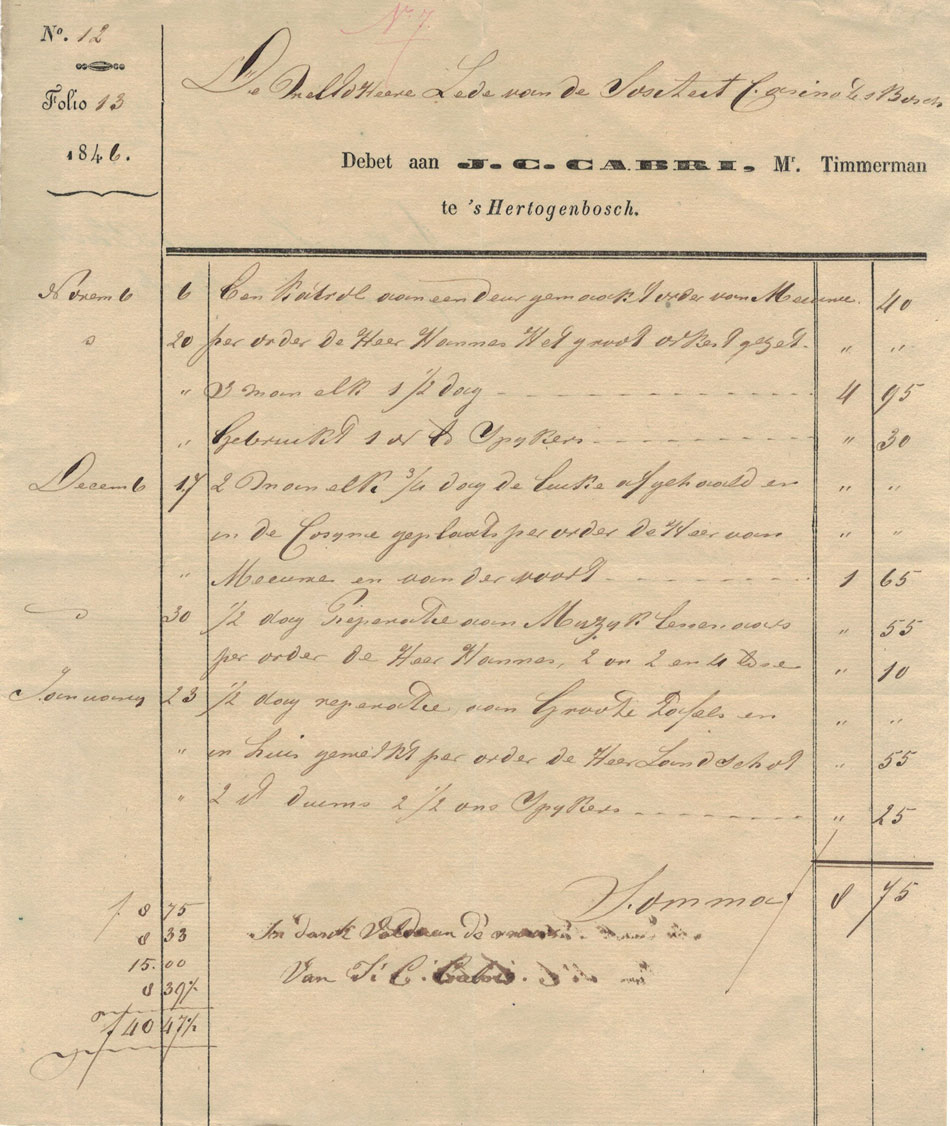 No. 12
No 7
Folio 13
1846.
De WelEdHeere Lede van de Sositeit Casino te s Bosch
Debet aan J. C. CABRI, Mr. Timmerman
te 's Hertogenbosch.
Novemb 6 Een Katrol aan een deur gemaakt order van Meeuwe. 40
20 per order de Heer Hannes Het groot orkest gezet. " "
" 3 man elk 1 1/2 dag 4 95
" Gebruikt 1 Spykers " 30
Decemb 17 2 man elk 3/4 dag de luike afgehaald en " "
in de Cosyne geplaats per order de Heer van " "
" Meeuwe en van der voort 1 65
30 1/2 dag Rieperatie aan Muzyk lessenaars " 55
per order de Heer Hannes, 2 en 2 en 4 " 10
Januwary 23 1/2 dag reperatie aan Groote Tafels en " "
" in huis gewerkt per order de Heer Landschot " 55
" 2 duims 2 1/2 ons Spykers " 25
Somma 8 75
f 8 75
8 33
15.00
8 39 1/2
f 40 47 1/2
In dank Voldaan
Van J. C. Cabri